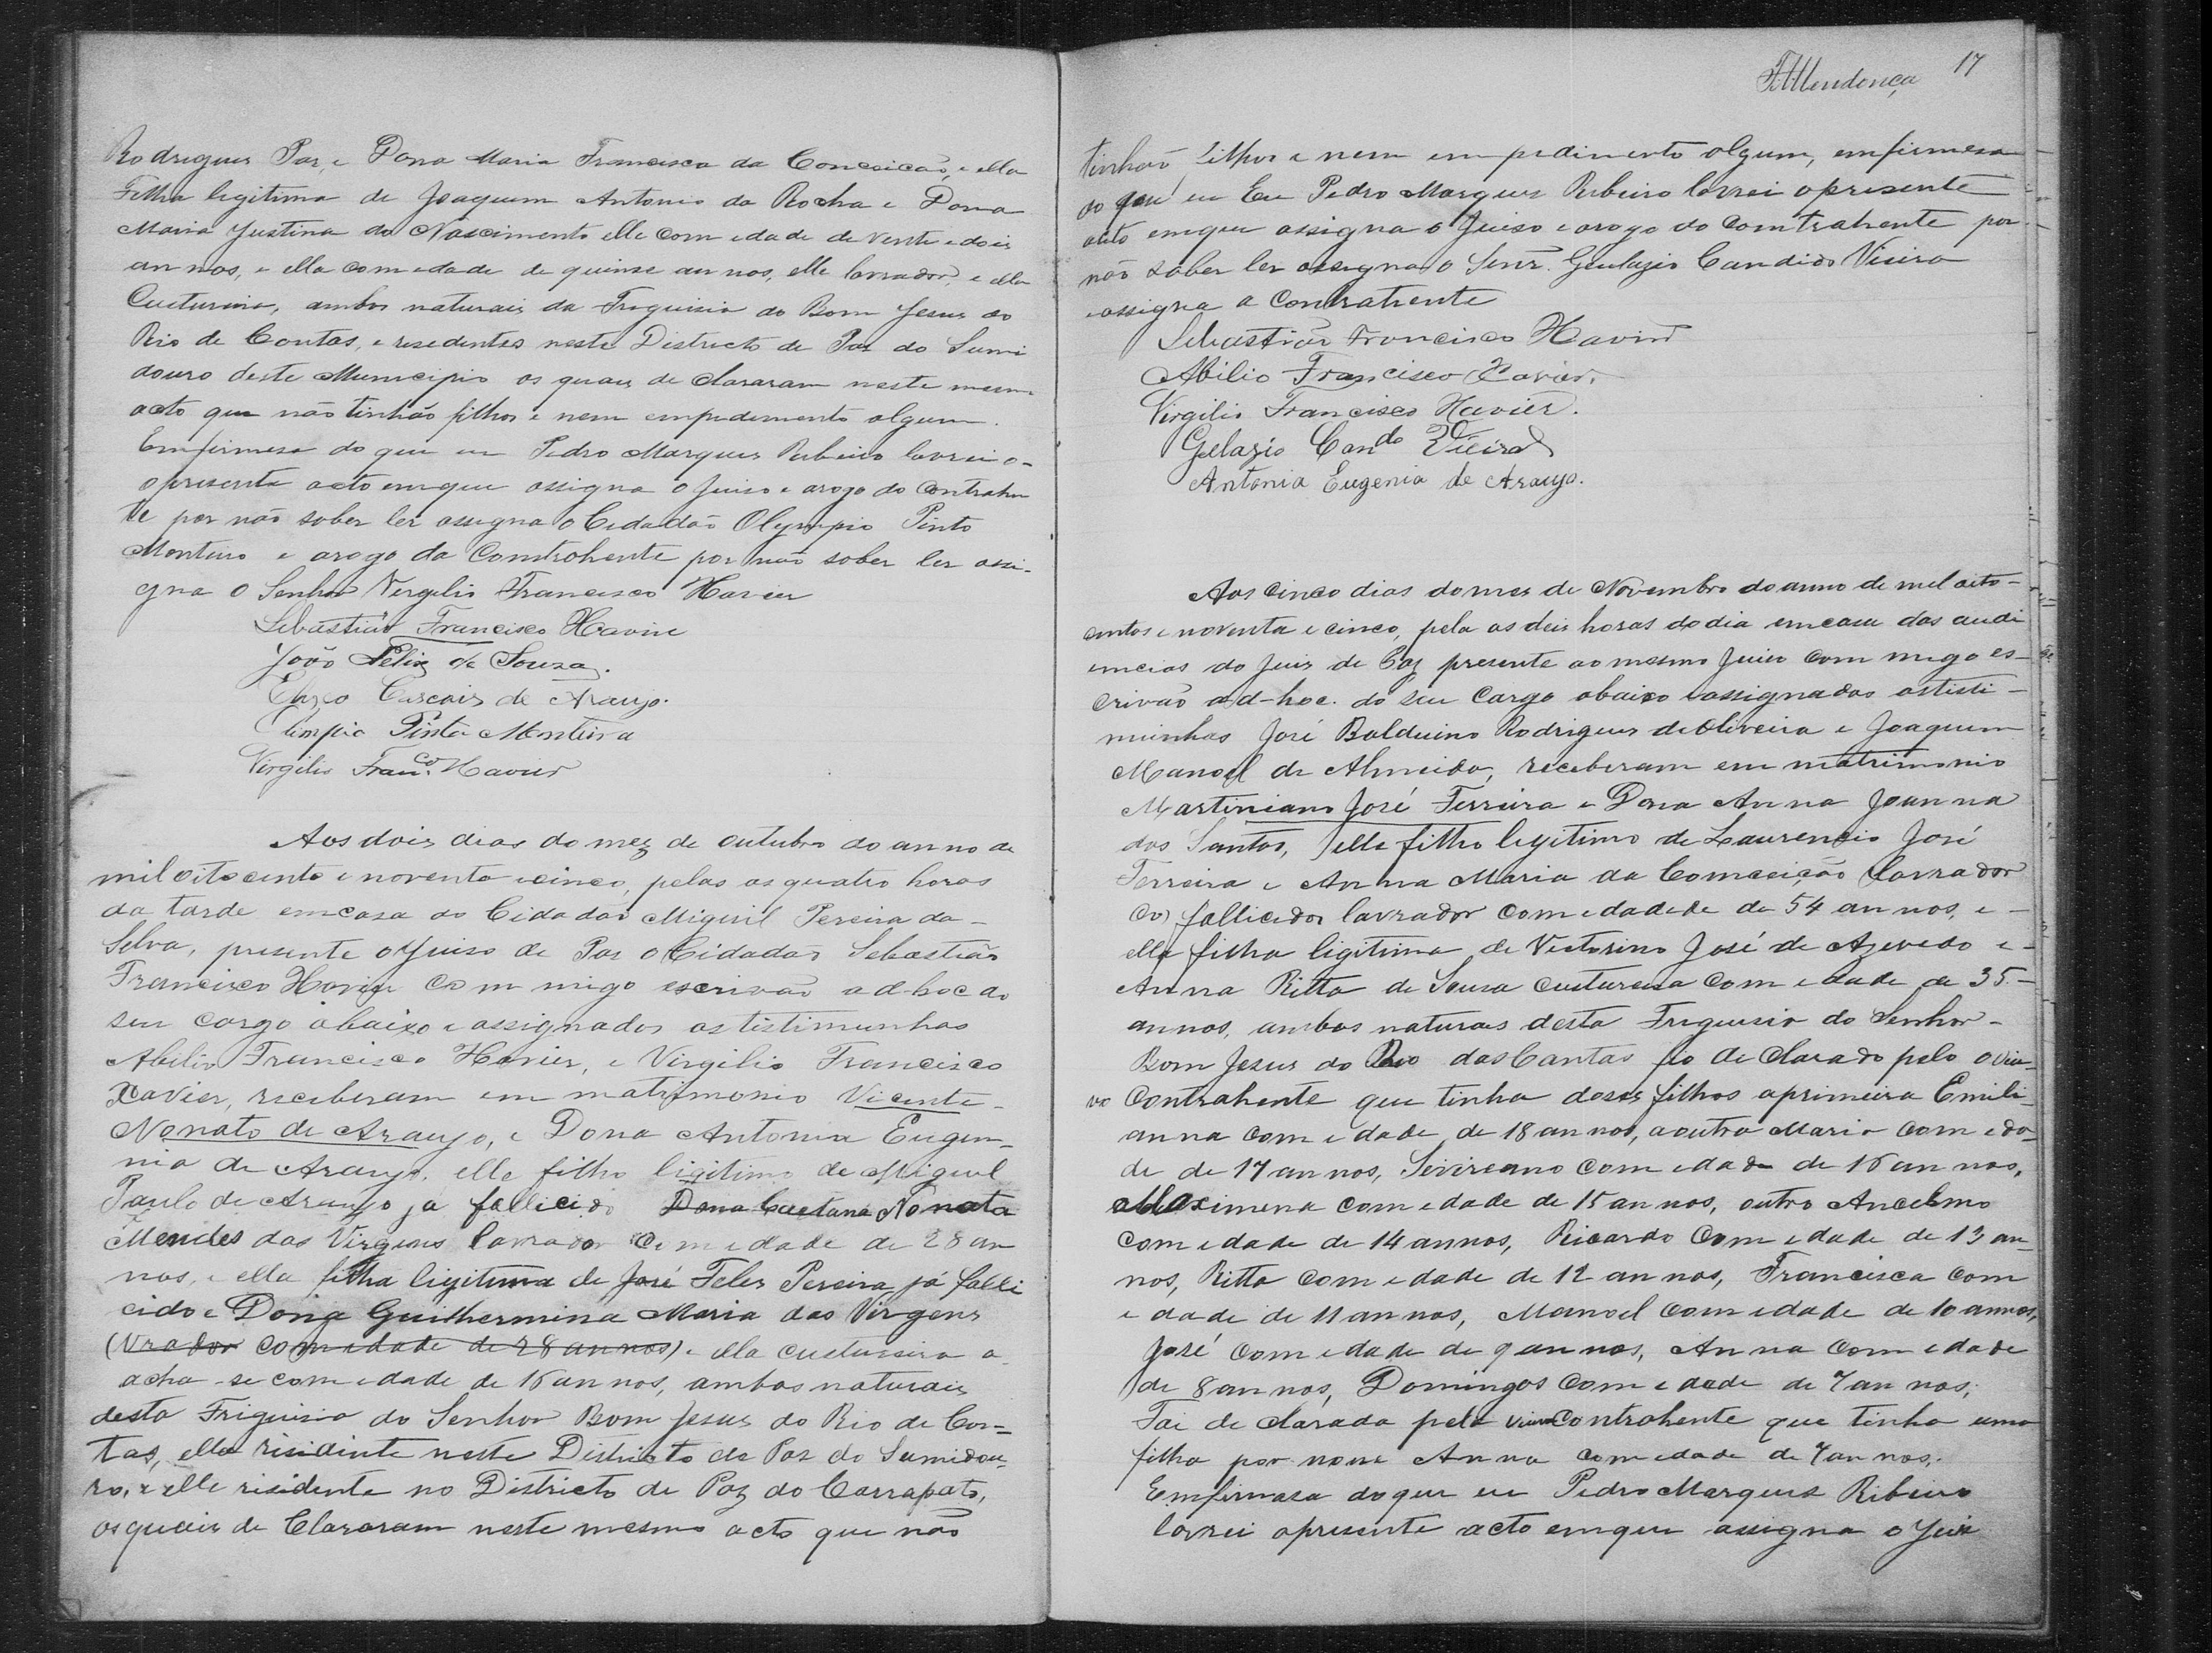 Rodrigues Paz, e Dona Maria Francisca da Conceicão, e ella
Filha legitima de Joaquim Antonio da Rocha e Dona
Maria Justina do Nascimento elle com edade de vente e dois
an nos, e ella com edade de quinse an nos, elle lavrador, e ella
Custureira, ambos naturais da Freguisia do Bom Jesus do
Rio de Contas, e resedentes neste Destricto de Paz do Sumi
douro deste Municipio os quais de clararam neste mesmo
acto que não tinhão filhos e nem empedemento algum.
Emfirmesa do que eu Pedro Marques Rebeiro lavrei o-
opresente acto emque assigna o Juiso e arogo do Contrahen
te por não saber ler assigna o Cidadão Olympio Pinto
Monteiro e arogo da Comtrohente por não saber ler assi-
gna o Senhor Vergilio Francisco Xavier
Sebastião Francisco Xavier
João Felix de Souza.
Cascais de Araujo.
Olimpio Pinto Monteiro
Virgilio Franco. Xavier
Aos dois dias do mez de outubro do an no de
mil oito cento e novento e cinco, pelas as quatro horas
da tarde emcasa do Cidadão Miguil Pereira da-
Selva, presente o Juiso de Pas o Cidadão Sebastião
Francisco Xavier Com migo escrivão ad-hoc do
seu cargo abaixo e assignados as tistimunhas
Abilio Francisco Xavier, e Virgilio Francisco
Xavier, receberam em matrimonio Vicente-
Nonato de Araujo, e Dona Antonia Eugen-
nia de Araujo, elle filho ligitimo de Miguel
Paulo de Araujo ja fallicido Dona Caetana Nonata
Mendes das Virgens lavrador Com edade de 28 an
nos, e ella filha ligitima de José Feles Pereira já falli
cido e Dona Guilhermina Maria das Virgens
(vrador com edade de 28 an nos) e ella custureira a
acha-se com edade de 16 an nos, ambos naturais
desta Friguisia do Senhor Bom Jesus do Rio de Con=
tas, ella risidinte neste Districto de Paz do Sumidou-
ro, e elle risidente no Districto de Paz do Carrapato,
os quais de Clararam neste mesmo acto que não
FMendonça 17
tinhão filhos e nem em pedimento algum, emfirmesa
do que eu Eu Pedro Marques Rebeiro lavrei opresente
acto emque assigna o Juiso e arogo do Comtrahente por
não saber ler assigna o Senr. Gelazio Candido Vieira
e assigna a Contratrente
Sebastião Francisco Xavier
Abilio Francisco Xavier.
Virgilio Francisco Xavier.
Gellazio Cando Vieira
Antonia Eugenia de Araujo.
Aos cinco dias do mes de Novembro do anno de mel oito-
centos e noventa e cinco, pela as deis horas do dia emcasa das audi
emcias do Juis de Paz presente ao mesmo Juiso com migo es-
crivão ad-hoc. do seu Cargo abaixo e assignados as tisti-
munhas José Balduino Rodrigues de Oliveira e Joaquim
Manoel de Almeida, receberam em matrimonio
Martiniano José Ferreira e Dona Anna Joanna
dos Santos, elle filho legitimo de Laurencio José
Ferreira e Anna Maria da Comceição lavrador
(os) fallicedos lavrador com edadede de 54 an nos, e-
ella filha ligitima de Victorino José de Azevedo e-
Anna Ritta de Sousa custureira com edade de 35-
annos, ambos naturaes desta Friguisia do Senhor-
Bom Jesus do Rio das Contas foi de clarado pelo o viu-
vo Contrahente que tinha doses filhos aprimeira Emili-
anna com edade de 18 an nos, aoutra Maria com eda-
de de 17 an nos, Sivireano com edade de 16 an nos,
Maximena com edade de 15 an nos, outro Ancelmo
com edade de 14 annos, Ricardo Com edade de 13 an-
nos, Ritta com edade de 12 an nos, Francisca com
e dade de 11 an nos, Manoel com edade de 10 annos,
José com edade de 9 an nos, Anna Com edade
de 8 an nos, Domingos Com edade de 7 an nos,
Foi de clarada pela viuva Contrahente que tinha uma
filha por nome Anna com edade de 7 an nos,
Emfirmasa do que eu Pedro Marques Ribeiro
lavrei opresente acto emque assigna o Juis